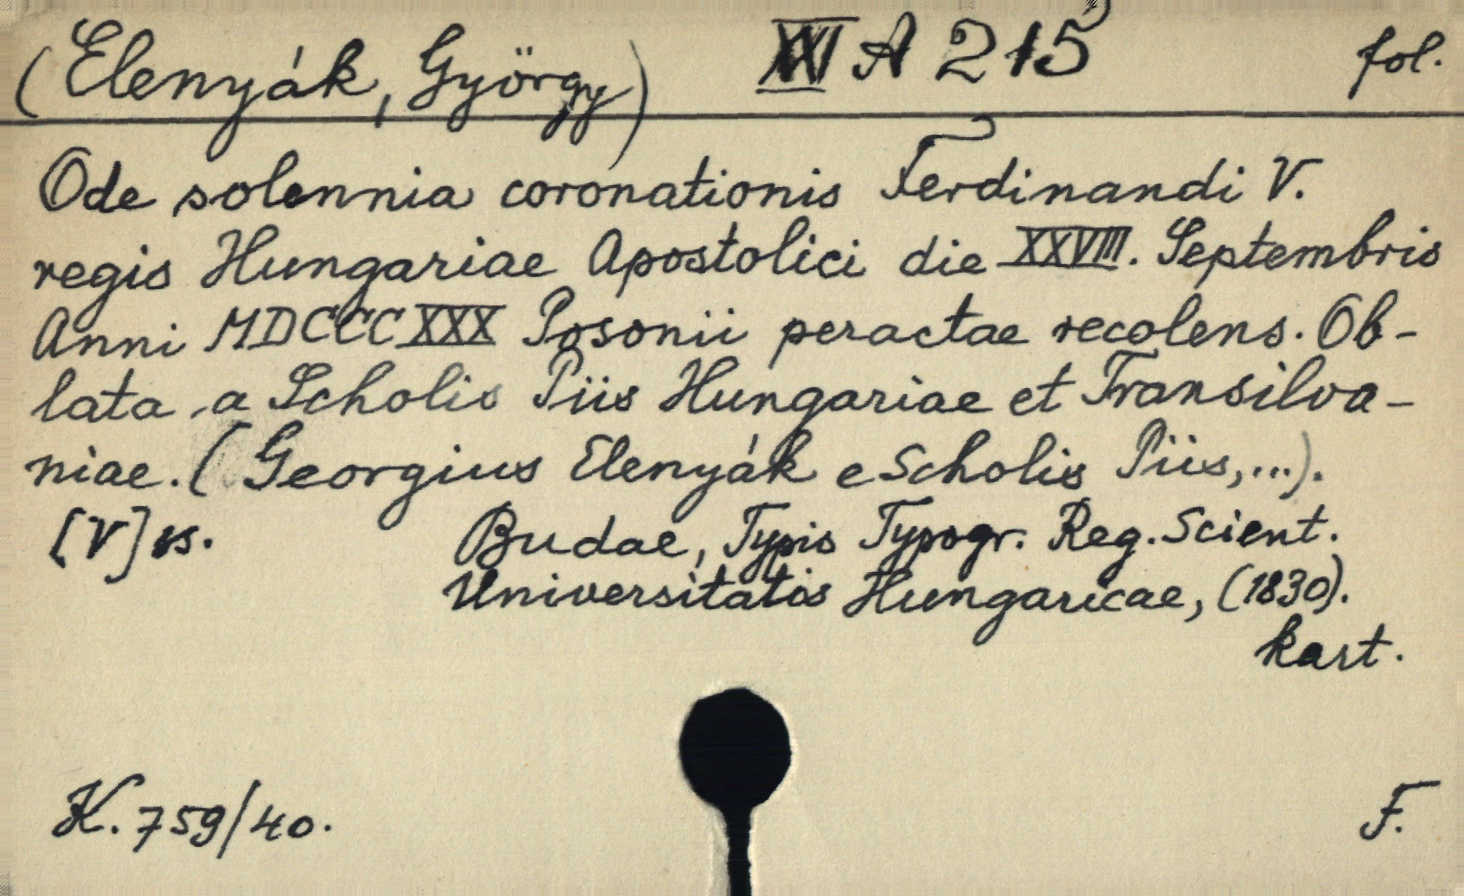 (Elenyák, György) XXI A 215 fol.
Ode solennia coronationis Ferdinandi V.
regis Hungariae Apostolici die XXVIII. Septembris
Anni MDCCCXXX Posonii peractae recolens. Ob-
lata a Scholis Piis Hungariae et Transilva-
niae. (Georgius Elenyák e Scholis Piis,...).
[V] es. Budae, Typis Typogr. Reg. Scient.
Universitatis Hungaricae, (1830).
kart.
K. 759/40. F.